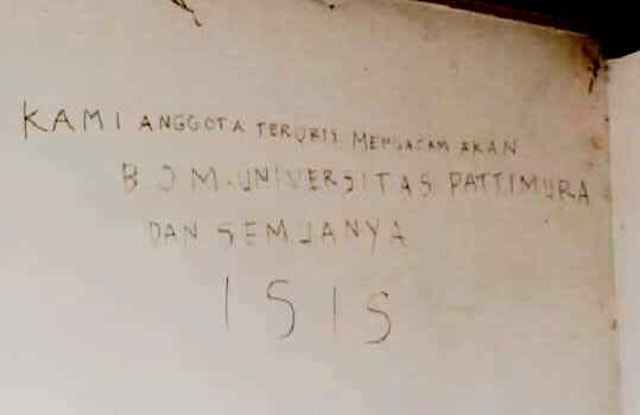 KAMI ANGGOTA TERORIS MENGACAM AKAN
BOM UNIVERSITAS PATTIMURA
DAN SEMUANYA
ISIS